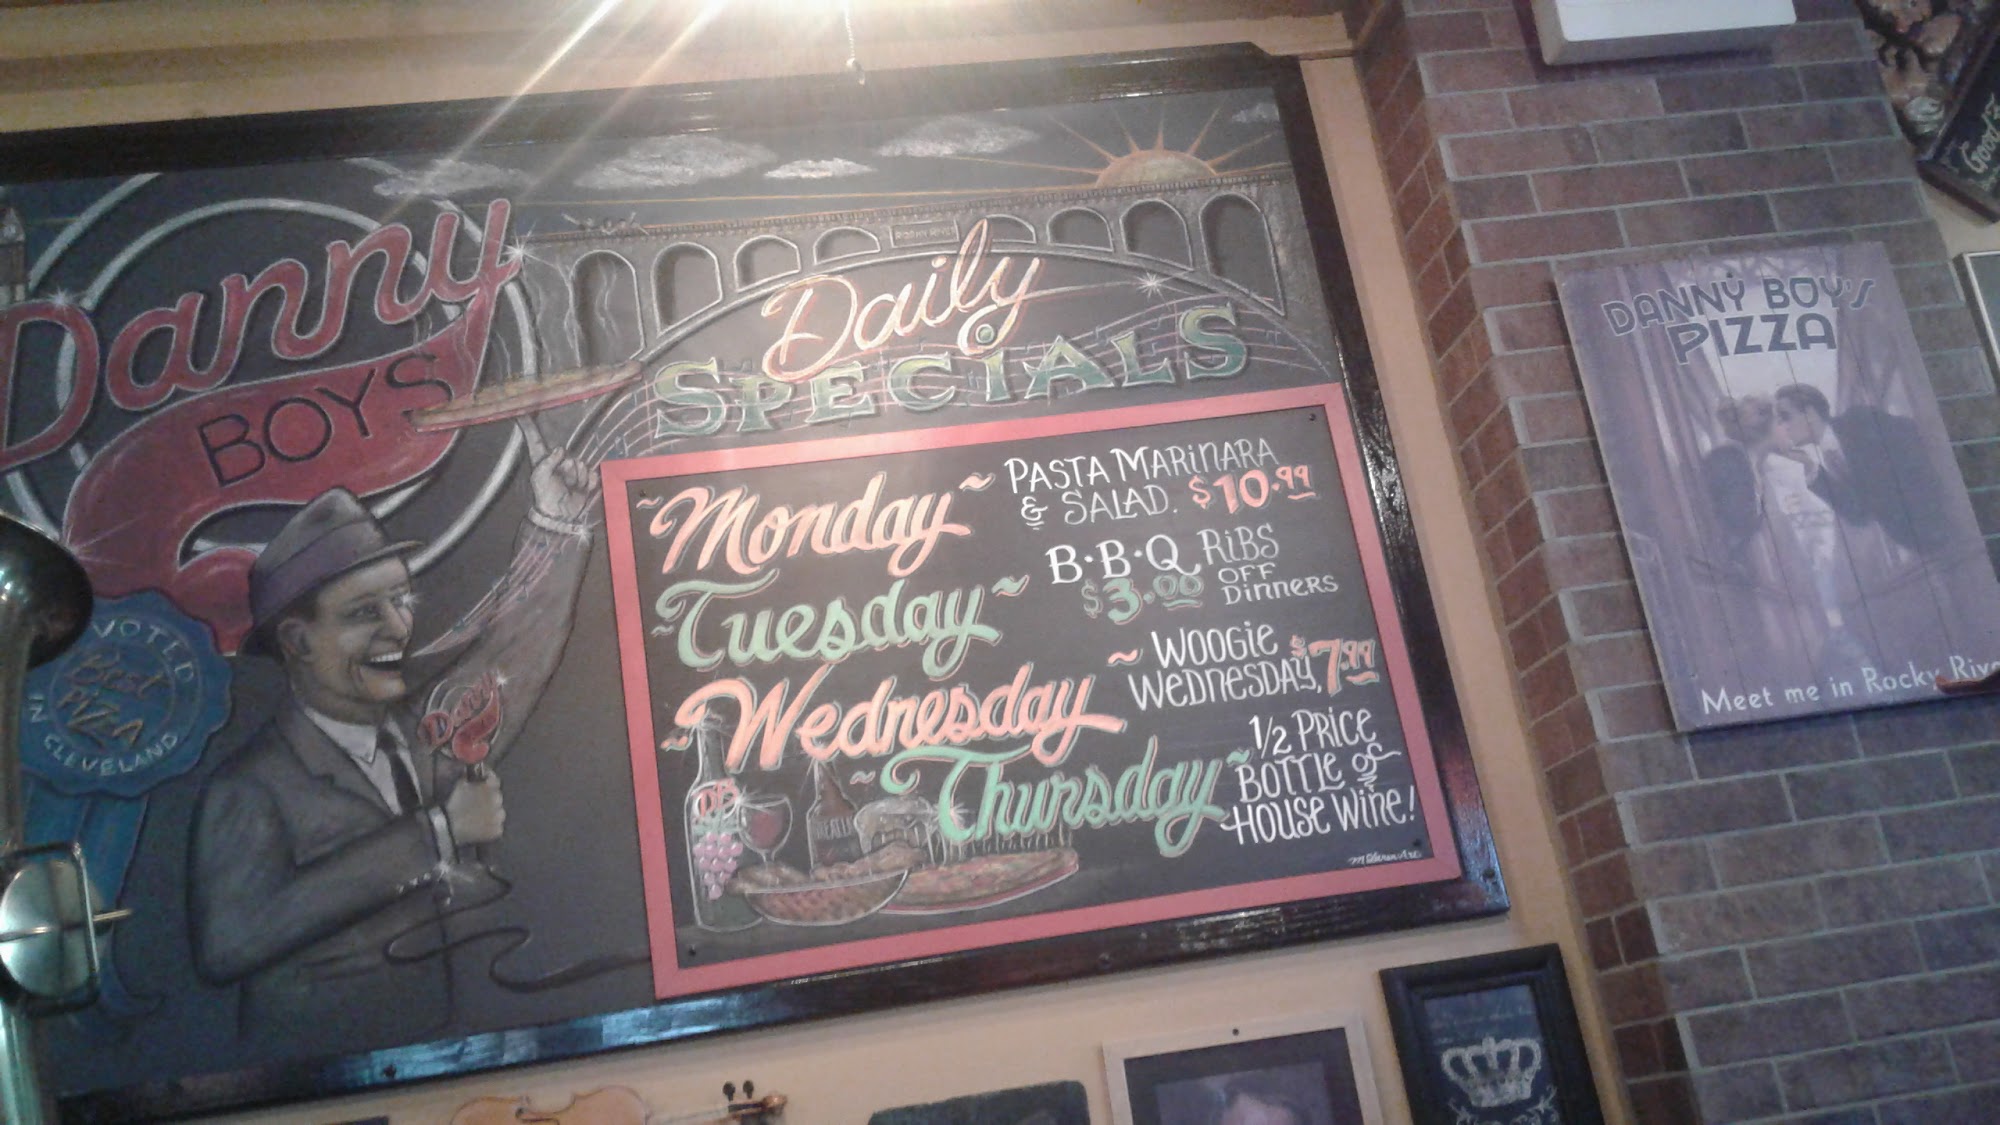 Danny
BOYS
VOTED
Best
PIZZA
IN CLEVELAND
Danny
ROCKY RIVER
Daily
SPECIALS
~Monday~ PASTA MARINARA
& SALAD. $10.99
~Tuesday~ B·B·Q RIBS
$3.00 OFF
DINNERS
~Wednesday~ WOOGIE
WEDNESDAY, $7.99
~Thursday~ 1/2 PRICE
BOTTLE of
HOUSE WINE!
DB
DANNY BOY'S
PIZZA
Meet me in Rocky Rive
Good